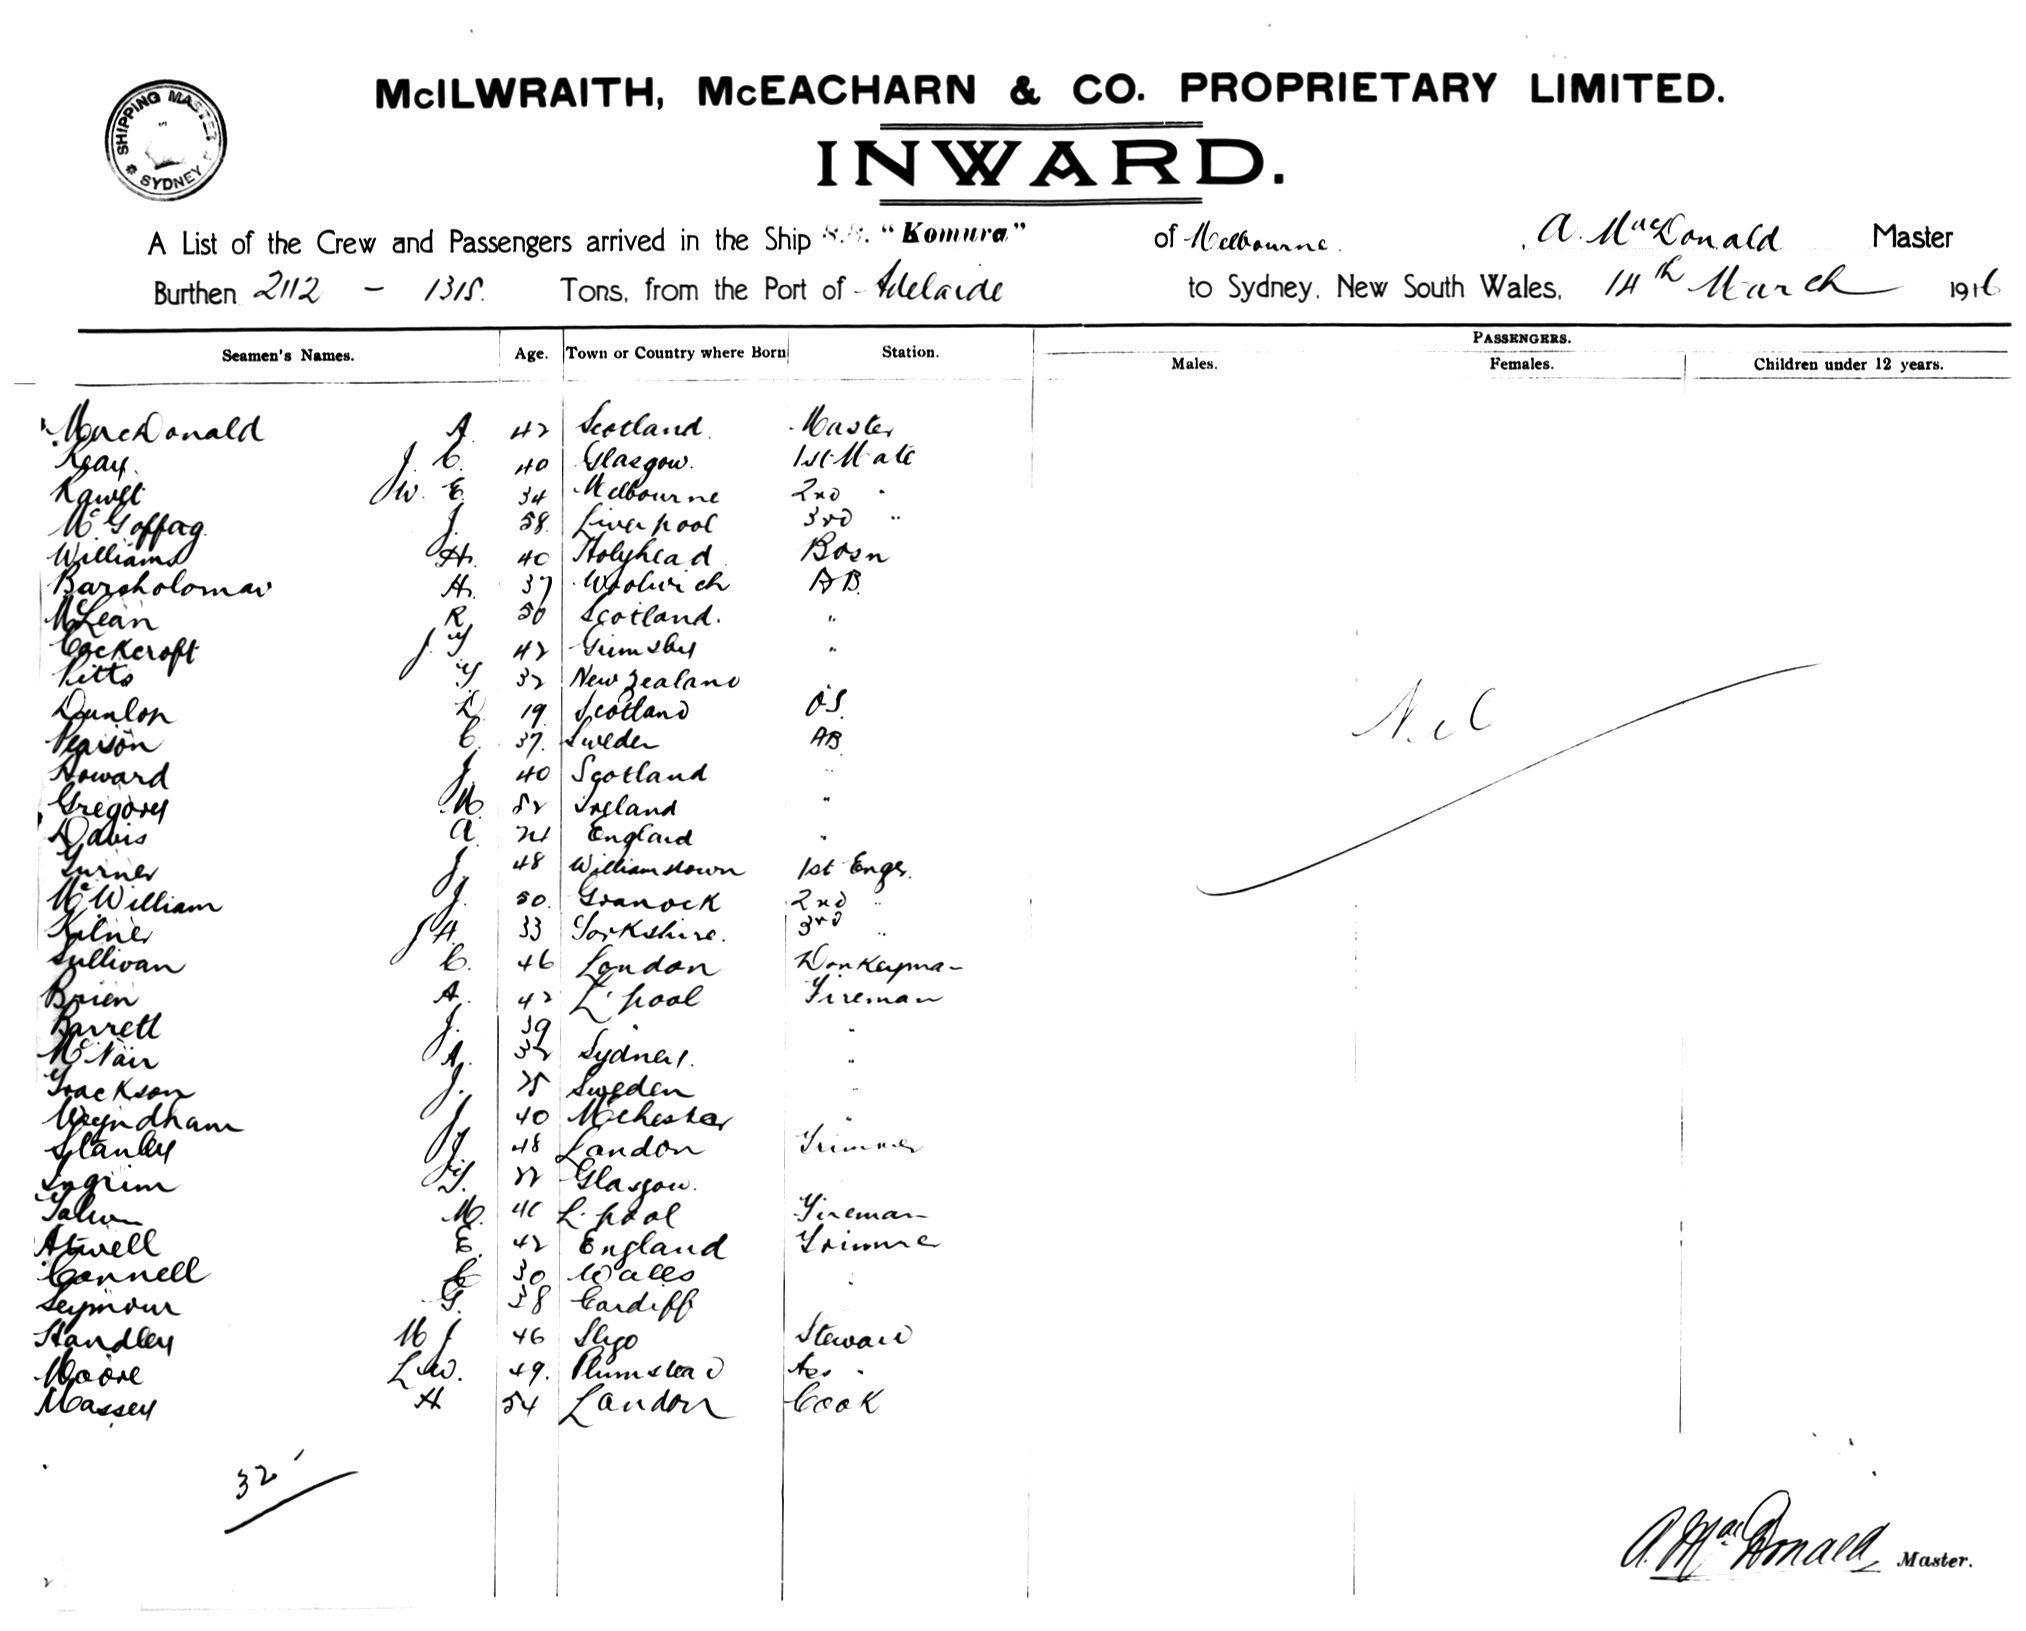 SHIPPING MASTER SYDNEY
McILWRAITH, McEACHARN & CO. PROPRIETARY LIMITED.
INWARD.
A List of the Crew and Passengers arrived in the Ship S.S. "Komura" of Melbourne. A. MacDonald Master
Burthen 2112 - 1315. Tons, from the Port of Adelaide to Sydney, New South Wales, 14th March 1916
PASSENGERS.
Seamen's Names. Age. Town or Country where Born Station. Males. Females. Children under 12 years.
MacDonald A. 42 Scotland. Master
Keay. J. C. 40 Glasgow. 1st Mate
W. E. 34 Melbourne 2nd "
McGoffag. J. 58. Liverpool 3rd "
Williams H. 40 Holyhead Bosn
H. 37 Woolwich AB.
McLean R. 50 Scotland. "
Cockcroft J. Y 42 Grimsby "
Pitts 32 New Zealand "
Dunlop D. 19 Scotland OS.
Pearson C. 37. Sweden AB.
Howard J. 40 Scotland "
Gregory M. 52 Ireland "
Davis A. 24 England "
Turner J. 48 Williamstown 1st Engr.
McWilliam J. 50. Granock 2nd "
Kilner J H. 33 Yorkshire. 3rd "
Sullivan C. 46 London Donkeyman
Brien A. 42 L'pool Fireman
Barrett J. 39 " "
McNair A. 32 Sydney. "
J. 25 Sweden "
Wyndham J 40 Mchester "
Stanley J 48 London Trimmer
Ingrim T. 22 Glasgow.
M. L'pool Fireman
Atwell E. 42 England Trimmer
Connell C 30 Wales "
Seymour G. 38 Cardiff
Standley M J 46 Sligo Steward
Moore L.W. 49. Plumstead Ass "
Massey H 54 London Cook
Nil
32
A. MacDonald Master.